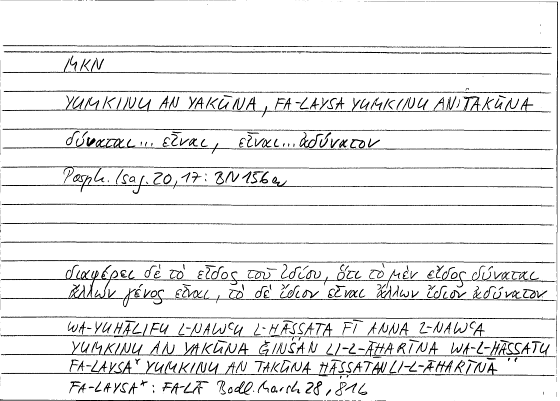 MKN
YUMKINU AN YAKŪNA, FA-LAYSA YUMKINU AN TAKŪNA
δύναται... εἶναι, εἶναι... ἀδύνατον
Porph. Isag. 20, 17: BN 156a
διαφέρει δὲ τὸ εἶδος τοῦ ἰδίου, ὅτι τὸ μὲν εἶδος δύναται
ἄλλων γένος εἶναι, τὸ δὲ ἴδιον εἶναι ἄλλων ἴδιον ἀδύνατον
WA-YUḪĀLIFU L-NAWʿU L-ḪĀṢṢATA FĪ ANNA L-NAWʿA
YUMKINU AN YAKŪNA ǦINSAN LI-L-ĀḪARĪNA WA-L-ḪĀṢṢATU
FA-LAYSA* YUMKINU AN TAKŪNA ḪĀṢṢATAN LI-L-ĀḪARĪNA
FA-LAYSA*: FA-LĀ Bodl. Marsh 28, 81b